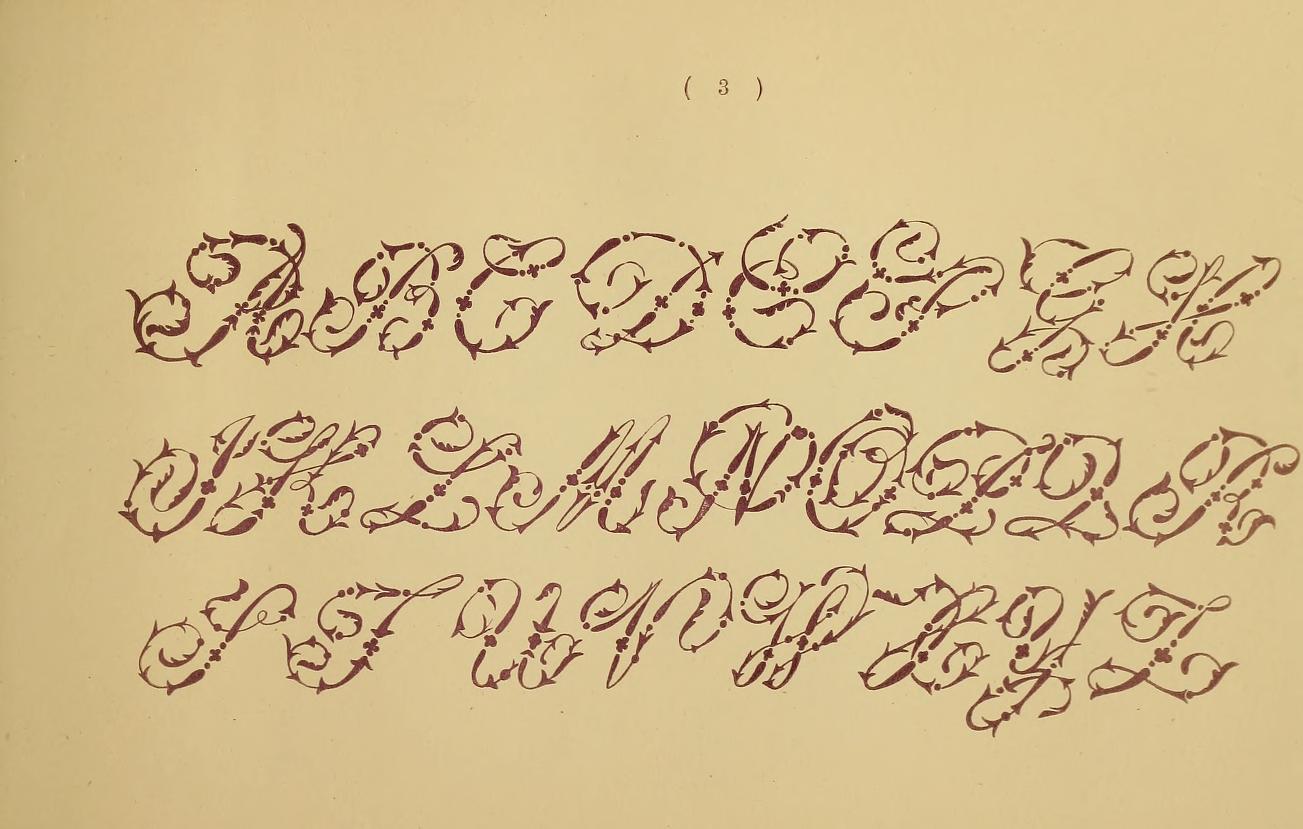 ( 3 )
A B C D E F G H
I K L M N O P Q R
S T U V W X Y Z